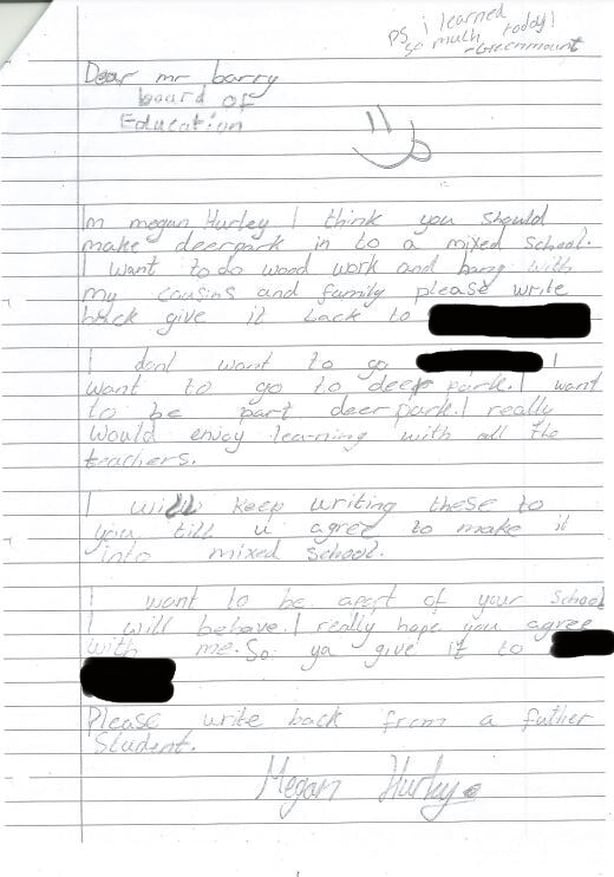 PS i learned
so much today!
-Greenmount
Dear mr barry
board of
Education
Im megan Hurley I think you should
make deerpark in to a mixed school.
I want to do wood work and hang with
my cousins and family please write
back give it back to
I dont want to go I
want to go to deer park. I want
to be part deerpark. I really
would enjoy learning with all the
teachers.
I will keep writing these to
you till u agree to make it
into mixed school.
I want to be apart of your school
I will behave. I really hope you agree
with me. So ya give it to
Please write back from a futher
Student.
Megan Hurley